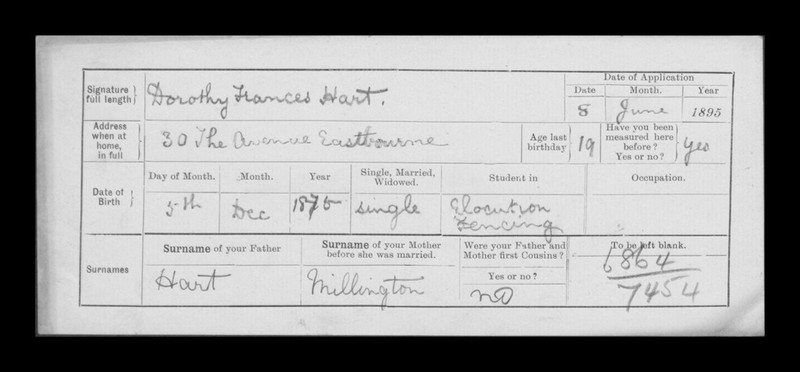 Signature full length} Dorothy Frances Hart.
Date of Application
Date Month. Year
8 June 1895
Address when at home, in full} 30 The Avenue Eastbourne
Age last birthday} 19
Have you been measured here before? Yes or no?} yes
Date of Birth}
Day of Month. Month. Year Single, Married, Widowed. Student in Occupation.
5th Dec 1875 single Elocution
Fencing
Surnames
Surname of your Father Surname of your Mother before she was married. Were your Father and Mother first Cousins? Yes or no? To be left blank.
Hart Millington no 6864
7454